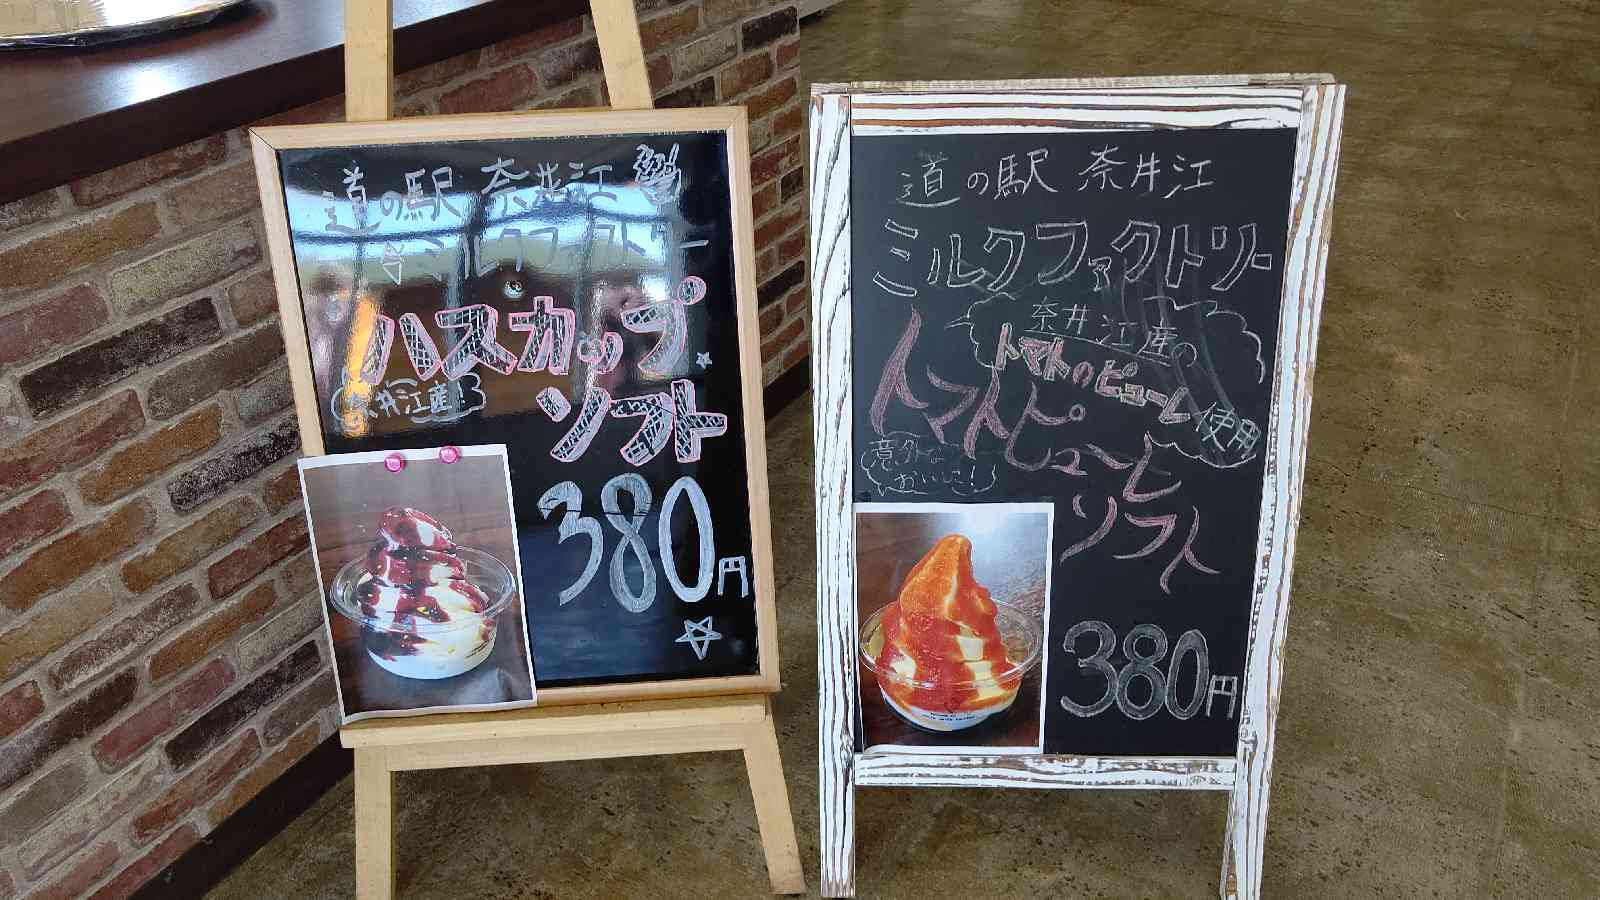 道の駅 奈井江
ミルクファクトリー
ハスカップ
奈井江産
ソフト
380円
道の駅 奈井江
ミルクファクトリー
奈井江産の
トマトのピューレ使用
トマトピューレ
ソフト
意外な
おいしさ!
380円